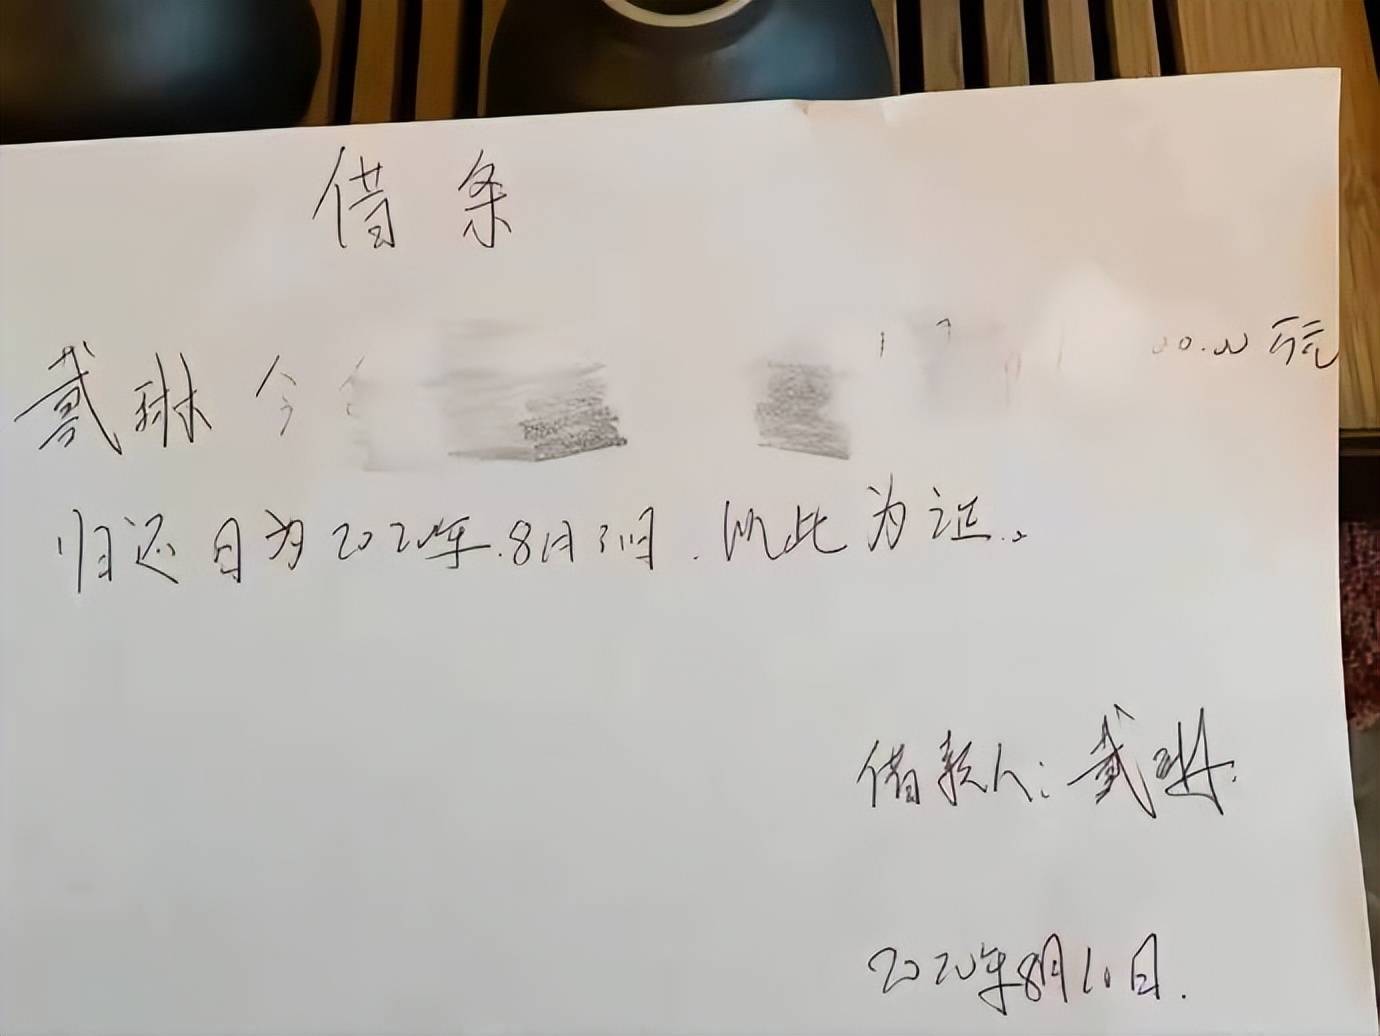 借条
戴琳今
00.00万元
归还日为2020年.8月31日.以此为证.。
借款人:戴琳.
2020年8月10日.